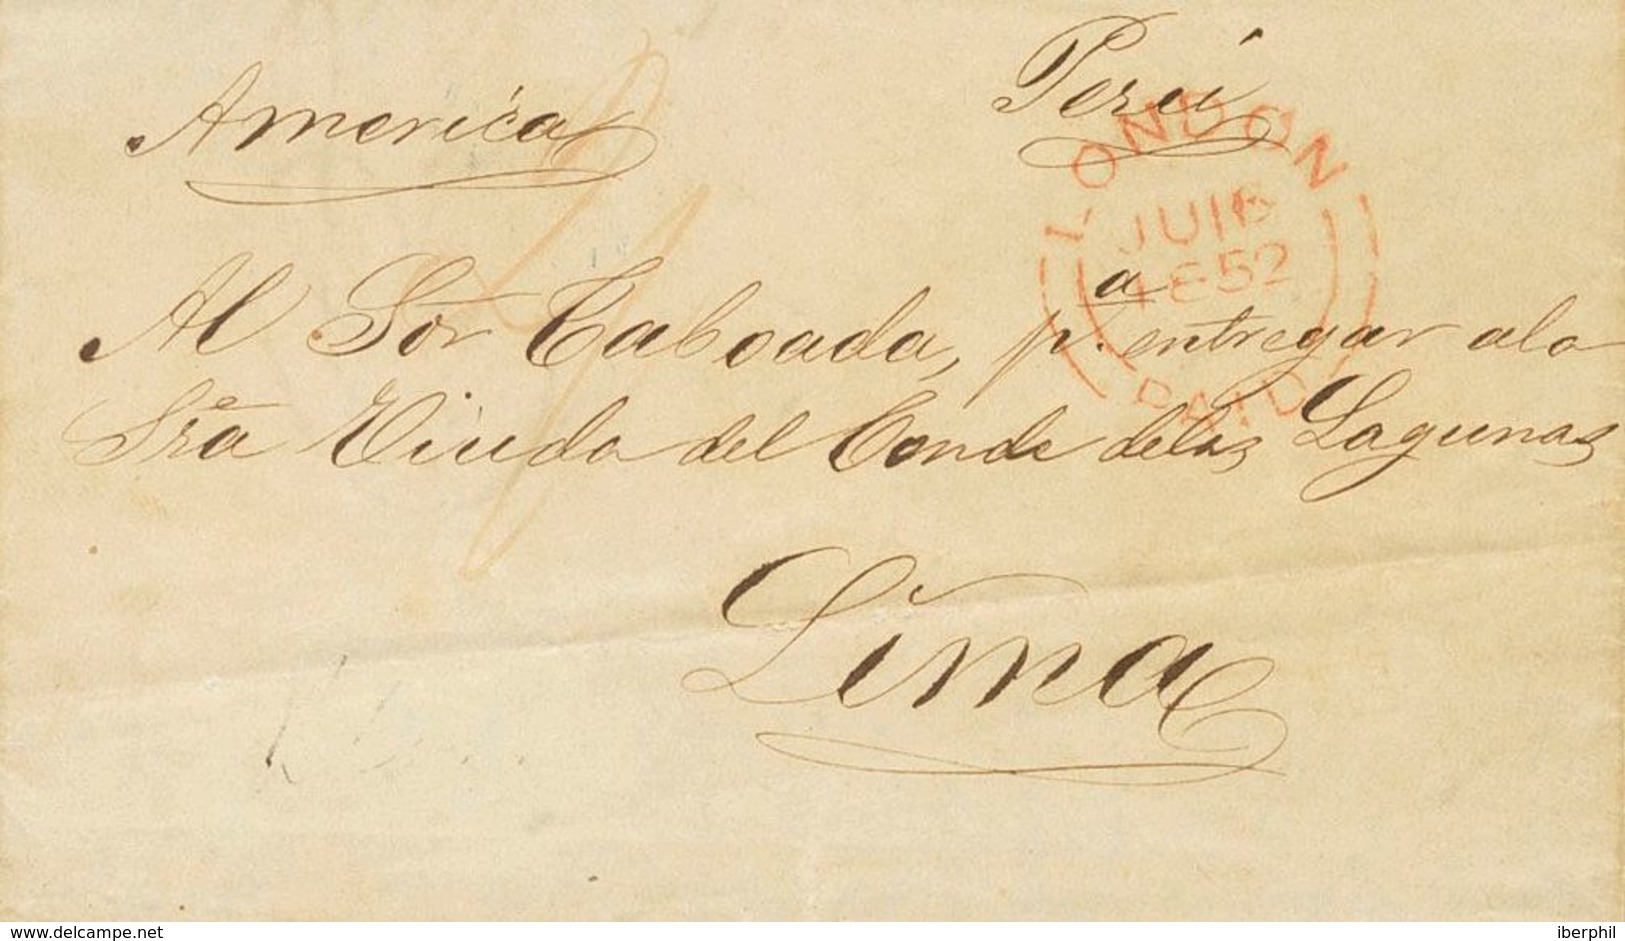 America
Perú
LONDON
JU 16
1852
PAID
Al Sor Taboada, pa. entregar a la
Sra Viuda del Conde de las Lagunas
Lima
www.delcampe.net
iberphil